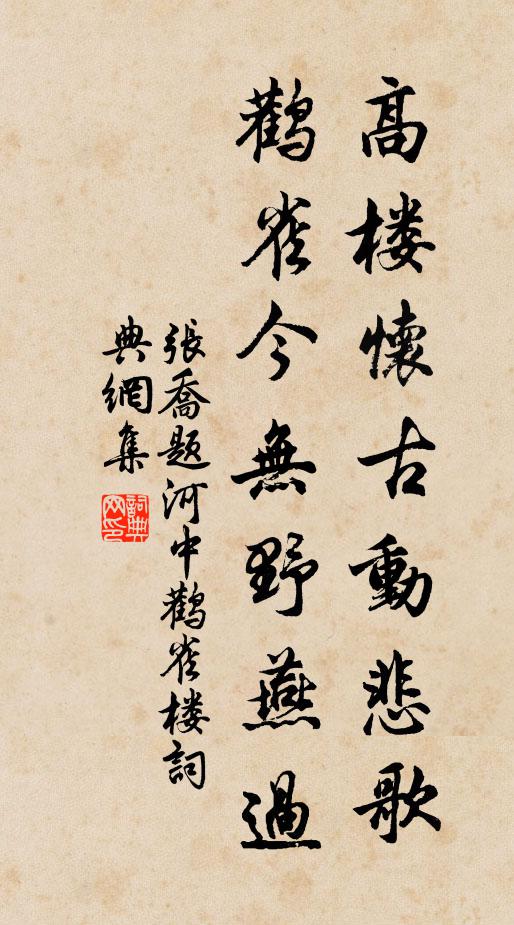 高楼懷古動悲歌
鹳雀今無野燕過
張喬題河中鹳雀楼詞
典網集
詞典網印